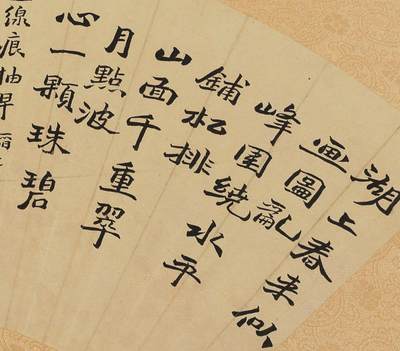 湖上春来似
画圖亂
峰圍繞水平
鋪松排
山面千重翠
月點波
心一顆珠碧
線痕抽早稻